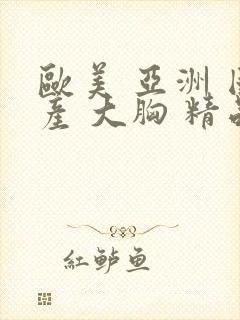 歐美 亞洲
産 大胸 精
紅鲈鱼